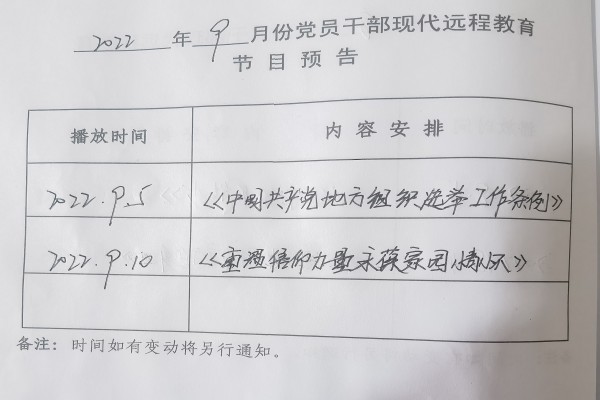 2022 年 9 月份党员干部现代远程教育
节目预告
播放时间 内容安排
2022.9.5 《中国共产党地方组织选举工作条例》
2022.9.10 《重温信仰力量永葆家国情怀》
备注：时间如有变动将另行通知。